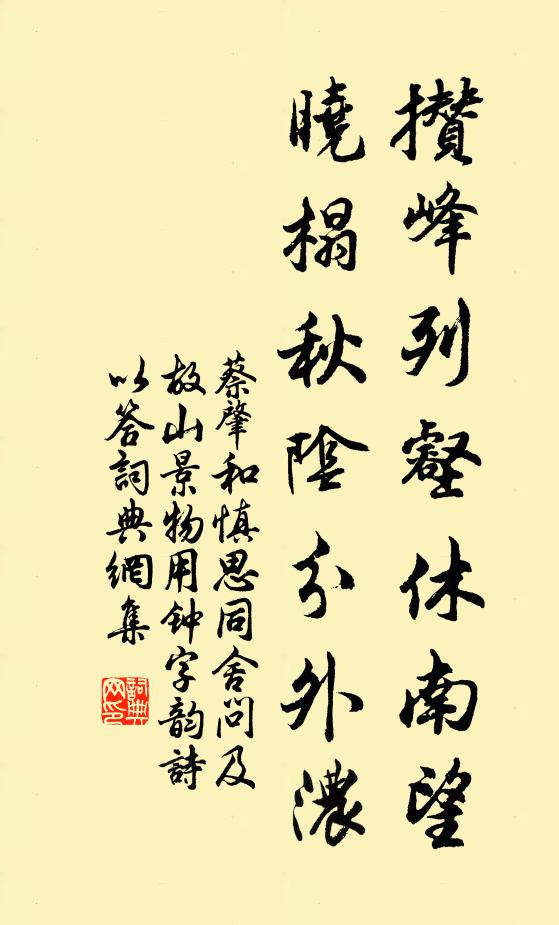 攢峰列壑休南望
曉榻秋陰分外濃
蔡肇和慎思同舍問及
故山景物用钟字韵詩
以答詞典網集
詞典網印